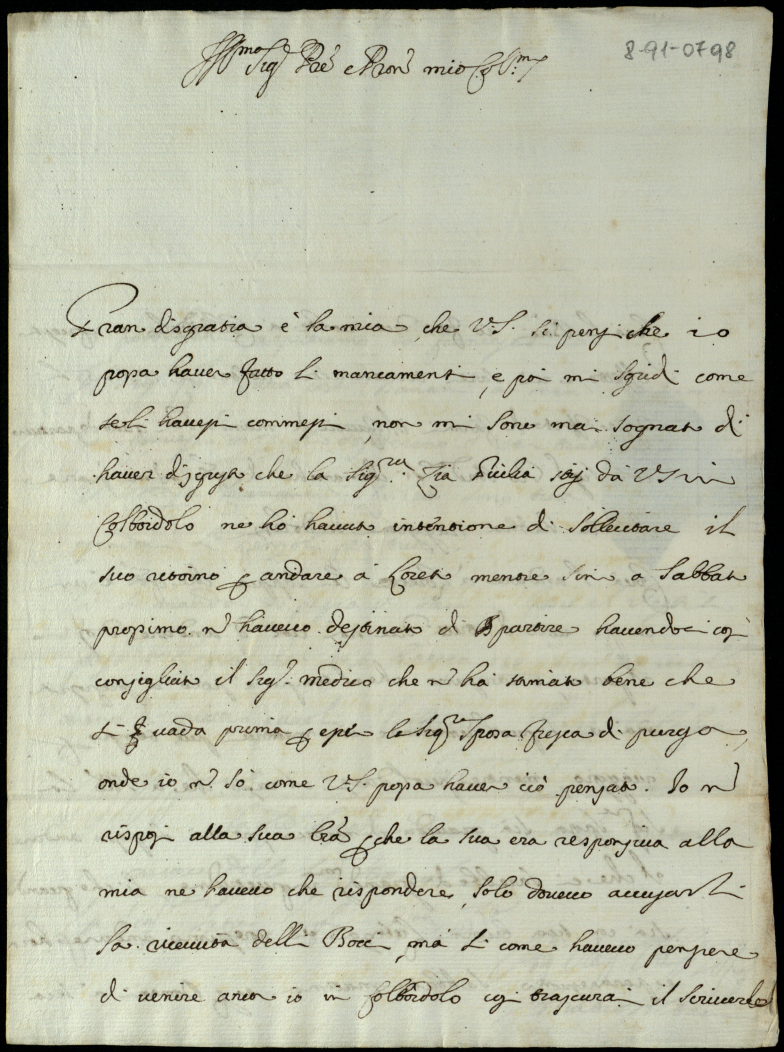 8-91-0798
Ill.mo Sig.r Pre e Pron mio Col.mo
Gran disgratia è la mia che V.S. si pensi che io
possa haver fatto li mancamenti, e poi mi sgridi come
se li havessi commessi, non mi sono mai sognato di
haver disgusto che la Sig.ra Zia Giulia stij da V.S. in
Colbordolo ne ho havuto intentione di sollecitare il
suo ritorno p andare a Loreto mentre sin a Sabbato
prossimo n havevo destinato di partire havendoci così
consigliato il Sig.r medico che n ha stimato bene che
si vada prima p esser la Sig.ra Sposa fresca di purga,
onde io n so come V.S. possa haver ciò pensato. Io n
risposi alla sua lra p che la sua era responsiva alla
mia ne havevo che rispondere, solo dovevo accusarli
la ricevuta delli Bocci, ma si come havevo pensiere
di venire anco io in Colbordolo così trascurai il scriverle